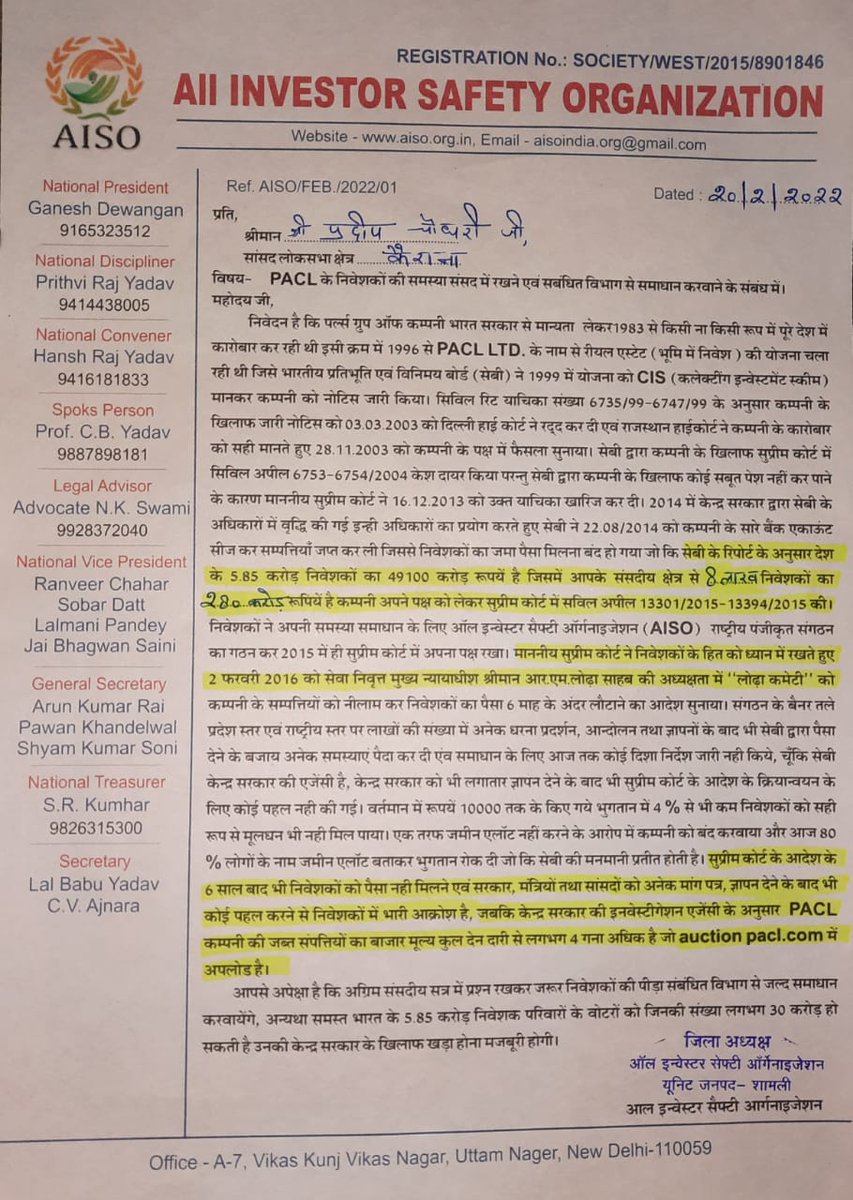 REGISTRATION No.: SOCIETY/WEST/2015/8901846
All INVESTOR SAFETY ORGANIZATION
AISO
Website - www.aiso.org.in, Email - aisoindia.org@gmail.com
National President
Ganesh Dewangan
9165323512
National Discipliner
Prithvi Raj Yadav
9414438005
National Convener
Hansh Raj Yadav
9416181833
Spoks Person
Prof. C.B. Yadav
9887898181
Legal Advisor
Advocate N.K. Swami
9928372040
National Vice President
Ranveer Chahar
Sobar Datt
Lalmani Pandey
Jai Bhagwan Saini
General Secretary
Arun Kumar Rai
Pawan Khandelwal
Shyam Kumar Soni
National Treasurer
S.R. Kumhar
9826315300
Secretary
Lal Babu Yadav
C.V. Ajnara
Ref. AISO/FEB./2022/01
Dated : 20/2/2022
प्रति,
श्रीमान श्री प्रदीप चौधरी जी,
सांसद लोकसभा क्षेत्र ........ कैराना
विषय- PACL के निवेशकों की समस्या संसद में रखने एवं सबंधित विभाग से समाधान करवाने के संबंध में।
महोदय जी,
निवेदन है कि पर्ल्स ग्रुप ऑफ कम्पनी भारत सरकार से मान्यता लेकर1983 से किसी ना किसी रूप में पूरे देश में
कारोबार कर रही थी इसी क्रम में 1996 से PACL LTD. के नाम से रीयल एस्टेट (भूमि में निवेश ) की योजना चला
रही थी जिसे भारतीय प्रतिभूति एवं विनिमय बोर्ड (सेबी) ने 1999 में योजना को CIS (कलेक्टींग इन्वेस्टमेंट स्कीम)
मानकर कम्पनी को नोटिस जारी किया। सिविल रिट याचिका संख्या 6735/99-6747/99 के अनुसार कम्पनी के
खिलाफ जारी नोटिस को 03.03.2003 को दिल्ली हाई कोर्ट ने रद्द कर दी एवं राजस्थान हाईकोर्ट ने कम्पनी के कारोबार
को सही मानते हुए 28.11.2003 को कम्पनी के पक्ष में फैसला सुनाया। सेबी द्वारा कम्पनी के खिलाफ सुप्रीम कोर्ट में
सिविल अपील 6753-6754/2004 केश दायर किया परन्तु सेबी द्वारा कम्पनी के खिलाफ कोई सबूत पेश नहीं कर पाने
के कारण माननीय सुप्रीम कोर्ट ने 16.12.2013 को उक्त याचिका खारिज कर दी। 2014 में केन्द्र सरकार द्वारा सेबी के
अधिकारों में वृद्धि की गई इन्ही अधिकारों का प्रयोग करते हुए सेबी ने 22.08/2014 को कम्पनी के सारे बैंक एकाऊंट
सीज कर सम्पत्तियाँ जप्त कर ली जिससे निवेशकों का जमा पैसा मिलना बंद हो गया जो कि सेबी के रिपोर्ट के अनुसार देश
के 5.85 करोड़ निवेशकों का 49100 करोड़ रूपयें है जिसमें आपके संसदीय क्षेत्र से 8 लाख निवेशकों का
280 करोड़ रूपियें है कम्पनी अपने पक्ष को लेकर सुप्रीम कोर्ट में सविल अपील 13301/2015-13394/2015 की।
निवेशकों ने अपनी समस्या समाधान के लिए ऑल इन्वेस्टर सैफ्टी ऑर्गनाइजेशन (AISO) राष्ट्रीय पंजीकृत संगठन
का गठन कर 2015 में ही सुप्रीम कोर्ट में अपना पक्ष रखा। माननीय सुप्रीम कोर्ट ने निवेशकों के हित को ध्यान में रखते हुए
2 फरवरी 2016 को सेवा निवृत्त मुख्य न्यायाधीश श्रीमान आर.एम.लोढ़ा साहब की अध्यक्षता में "लोढ़ा कमेटी" को
कम्पनी के सम्पत्तियों को नीलाम कर निवेशकों का पैसा 6 माह के अंदर लौटाने का आदेश सुनाया। संगठन के बैनर तले
प्रदेश स्तर एवं राष्ट्रीय स्तर पर लाखों की संख्या में अनेक धरना प्रदर्शन, आन्दोलन तथा ज्ञापनों के बाद भी सेबी द्वारा पैसा
देने के बजाय अनेक समस्याएं पैदा कर दी एंव समाधान के लिए आज तक कोई दिशा निर्देश जारी नही किये, चूँकि सेबी
केन्द्र सरकार की एजेंसी है, केन्द्र सरकार को भी लगातार ज्ञापन देने के बाद भी सुप्रीम कोर्ट के आदेश के क्रियान्वयन के
लिए कोई पहल नही की गई। वर्तमान में रूपयें 10000 तक के किए गये भुगतान में 4 % से भी कम निवेशकों को सही
रूप से मूलधन भी नही मिल पाया। एक तरफ जमीन एलॉट नहीं करने के आरोप में कम्पनी को बंद करवाया और आज 80
% लोगों के नाम जमीन एलॉट बताकर भुगतान रोक दी जो कि सेबी की मनमानी प्रतीत होती है। सुप्रीम कोर्ट के आदेश के
6 साल बाद भी निवेशकों को पैसा नही मिलने एवं सरकार, मंत्रियों तथा सांसदों को अनेक मांग पत्र, ज्ञापन देने के बाद भी
कोई पहल करने से निवेशकों में भारी आक्रोश है, जबकि केन्द्र सरकार की इनवेस्टीगेशन एजेंसी के अनुसार PACL
कम्पनी की जब्त संपत्तियों का बाजार मूल्य कुल देन दारी से लगभग 4 गना अधिक है जो auction pacl.com में
अपलोड है।
आपसे अपेक्षा है कि अग्रिम संसदीय सत्र में प्रश्न रखकर जरूर निवेशकों की पीड़ा संबंधित विभाग से जल्द समाधान
करवायेंगे, अन्यथा समस्त भारत के 5.85 करोड़ निवेशक परिवारों के वोटरों को जिनकी संख्या लगभग 30 करोड़ हो
सकती है उनकी केन्द्र सरकार के खिलाफ खड़ा होना मजबूरी होगी।
जिला अध्यक्ष
ऑल इन्वेस्टर सेफ्टी ऑर्गेनाइजेशन
यूनिट जनपद- शामली
आल इन्वेस्टर सैफ्टी आर्गनाइजेशन
Office - A-7, Vikas Kunj Vikas Nagar, Uttam Nager, New Delhi-110059